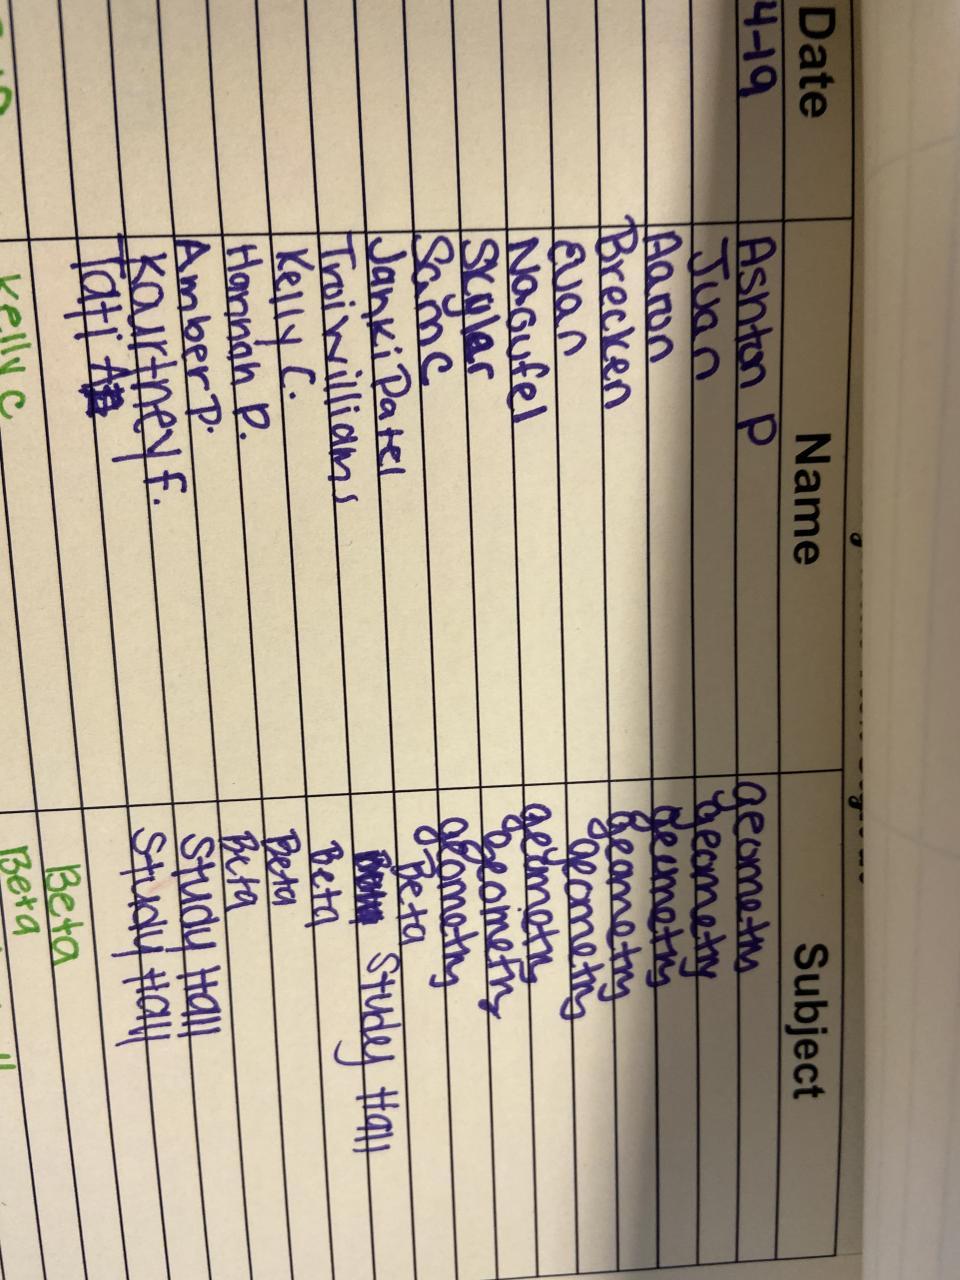 Date Name Subject
4-19 Ashton P geometry
Juan geometry
Aaron geometry
Brecken geometry
Evan geometry
Naoufel geometry
Skylar geometry
Sam C geometry
Janki Patel Beta
Troi williams Study Hall
Kelly C. Beta
Hannah P. Beta
Amber P. Beta
Kourtney f. Study Hall
Tati Study Hall
Kelly C Beta
Beta